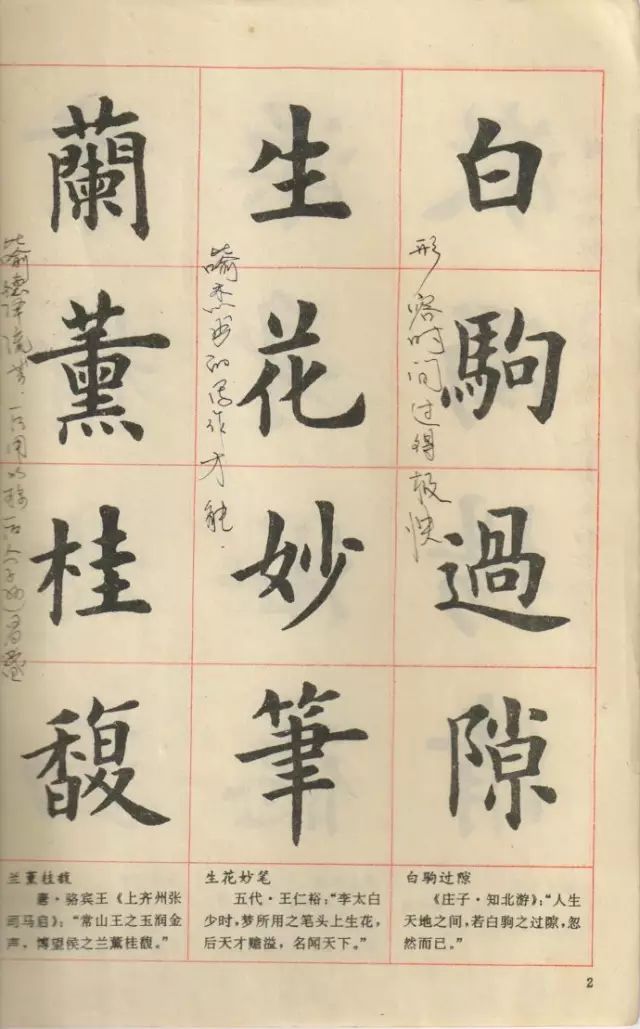 白駒過隙
形容时间过得极快
生花妙筆
喻杰出的写作才能.
蘭薰桂馥
喻德泽流芳.
白驹过隙
《庄子·知北游》：“人生
天地之间，若白驹之过隙，忽
然而已。”
生花妙笔
五代·王仁裕：“李太白
少时，梦所用之笔头上生花，
后天才赡溢，名闻天下。”
兰薰桂馥
唐·骆宾王《上齐州张
司马启》：“常山王之玉润金
声，博望侯之兰薰桂馥。”
2